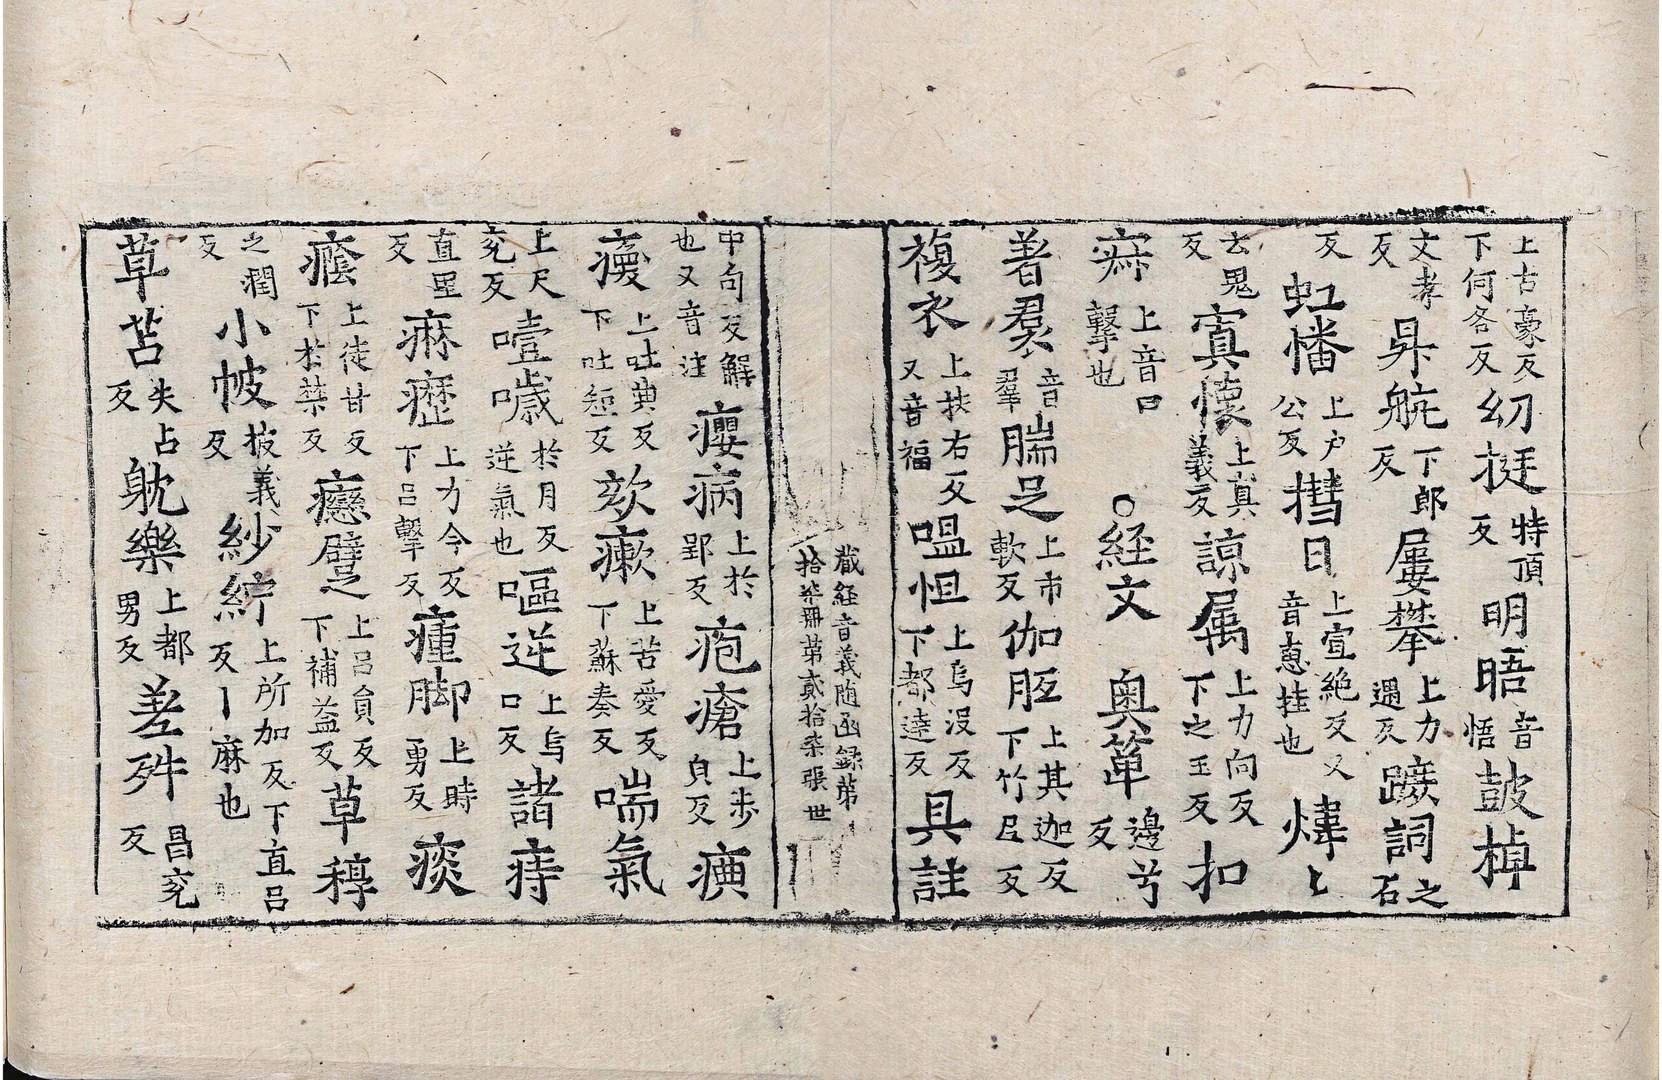 上古豪反下何各反幼挺特頂反明晤音悟鼓棹
文孝反昇航下郎反屢攀上力遇反蹶詞之石
反虹幡上戶公反撍日上宣絕反又音彗挂也煒上
去鬼反寘懷上真義反諒属上力向反下之玉反扣
寂上音口擊也○経文奧箄邊兮反
著羣音羣腨足上市軟反伽胝上其迦反下竹尼反
複衣上扶右反又音福嗢怛上烏沒反下都達反具註
藏経音義随函録第拾柒冊第貳拾柒張世
中句反解也又音注癭病上於郢反疱瘡上步皃反㿂
㾪上吐典反下吐短反欬瘶上苦愛反下蘇奏反喘氣
上尺兖反噎噦於月反逆氣也嘔逆上烏口反諸痔
直里反痳瀝上力今反下吕擊反瘇脚上時勇反痰
癊上徒甘反下於禁反癵躄上吕貟反下補益反草稕
之潤反小帔披義反紗紵上所加反下直吕反丨麻也
草苫失占反躭樂上都男反差舛昌兖反